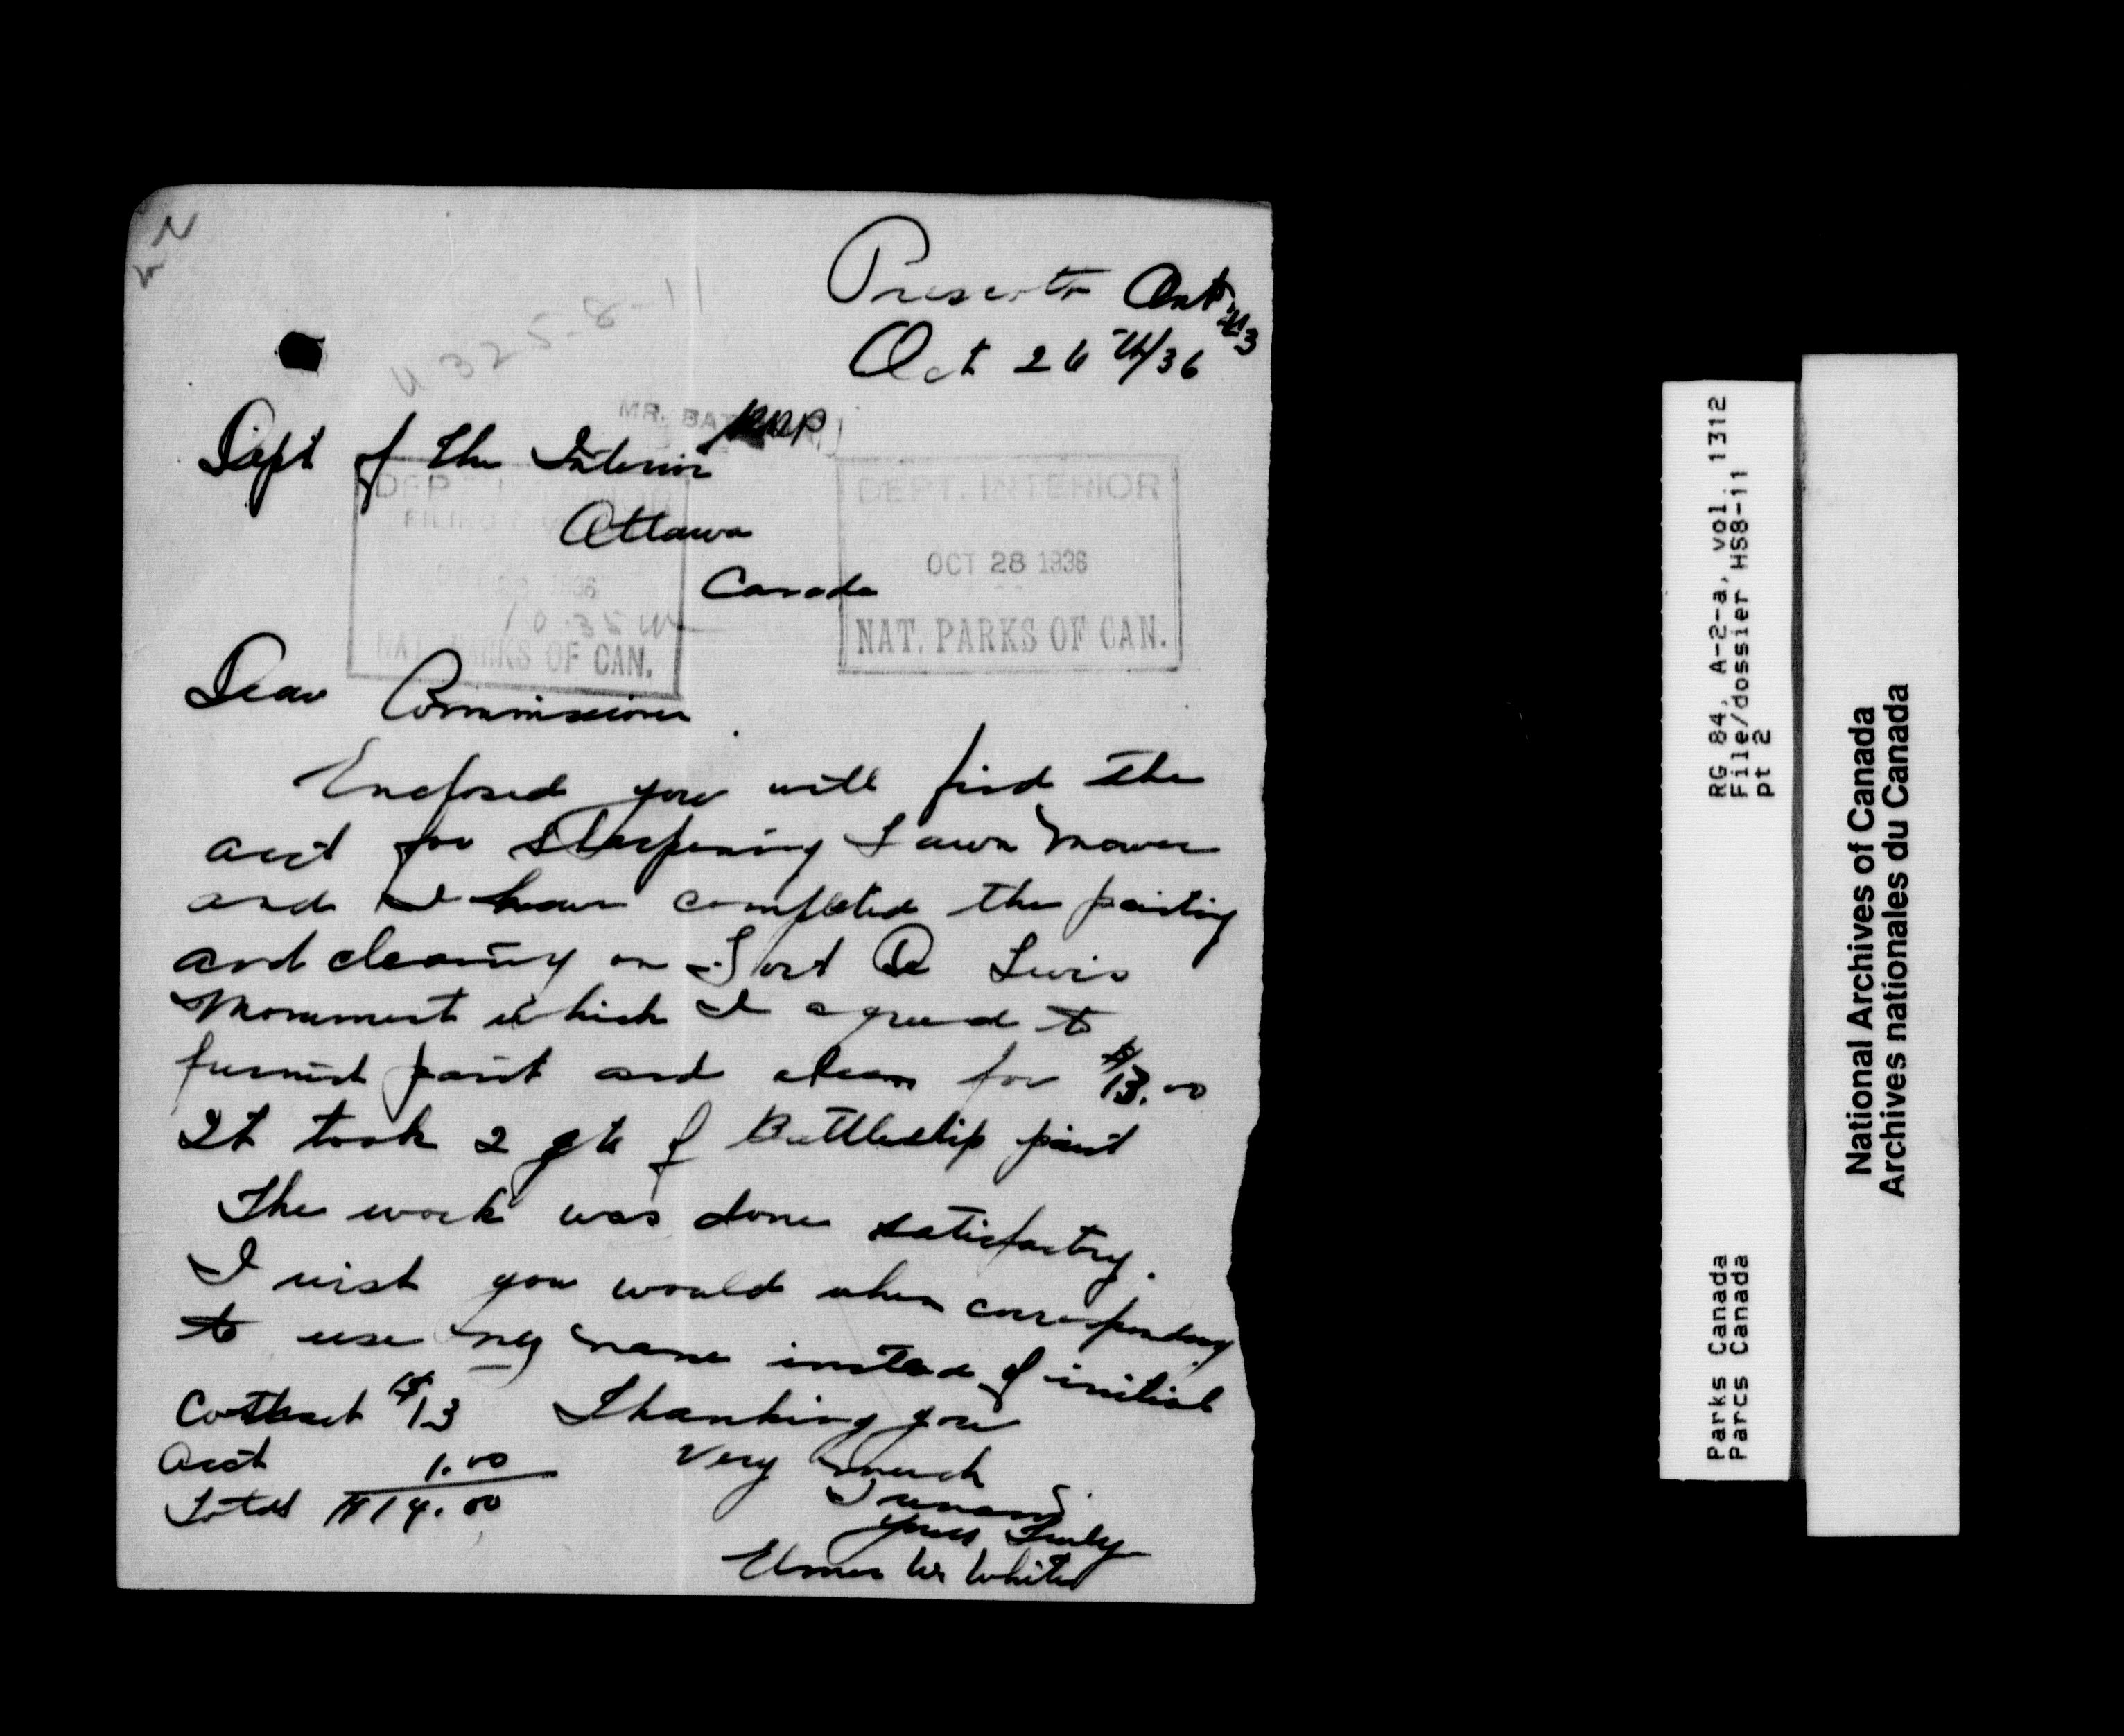 Prescott Ont
Oct 26th/36
U325-8-11
MR. BAT
Dept of the Interior
Ottawa
Canada
DEPT. INTERIOR
FILING
OCT 28 1936
10.35
NAT. PARKS OF CAN.
DEPT. INTERIOR
OCT 28 1936
NAT. PARKS OF CAN.
Dear Commissioner
Enclosed you will find the
acct for sharpening Lawn Mower
and I have completed the painting
and cleaning on Fort De Levis
Monument which I agreed to
furnish paint and clean for $13.00
It took 2 qts of Battleship paint
The work was done satisfactory.
I wish you would when corresponding
to use my name instead of initial
Contract $13 Thanking you
Acct 1.00 Very much
Total $14.00
I remain
Yours Truly
Elmer W White
RG 84, A-2-a, vol. 1312
File/dossier HS8-11
pt 2
Parks Canada
Parcs Canada
National Archives of Canada
Archives nationales du Canada